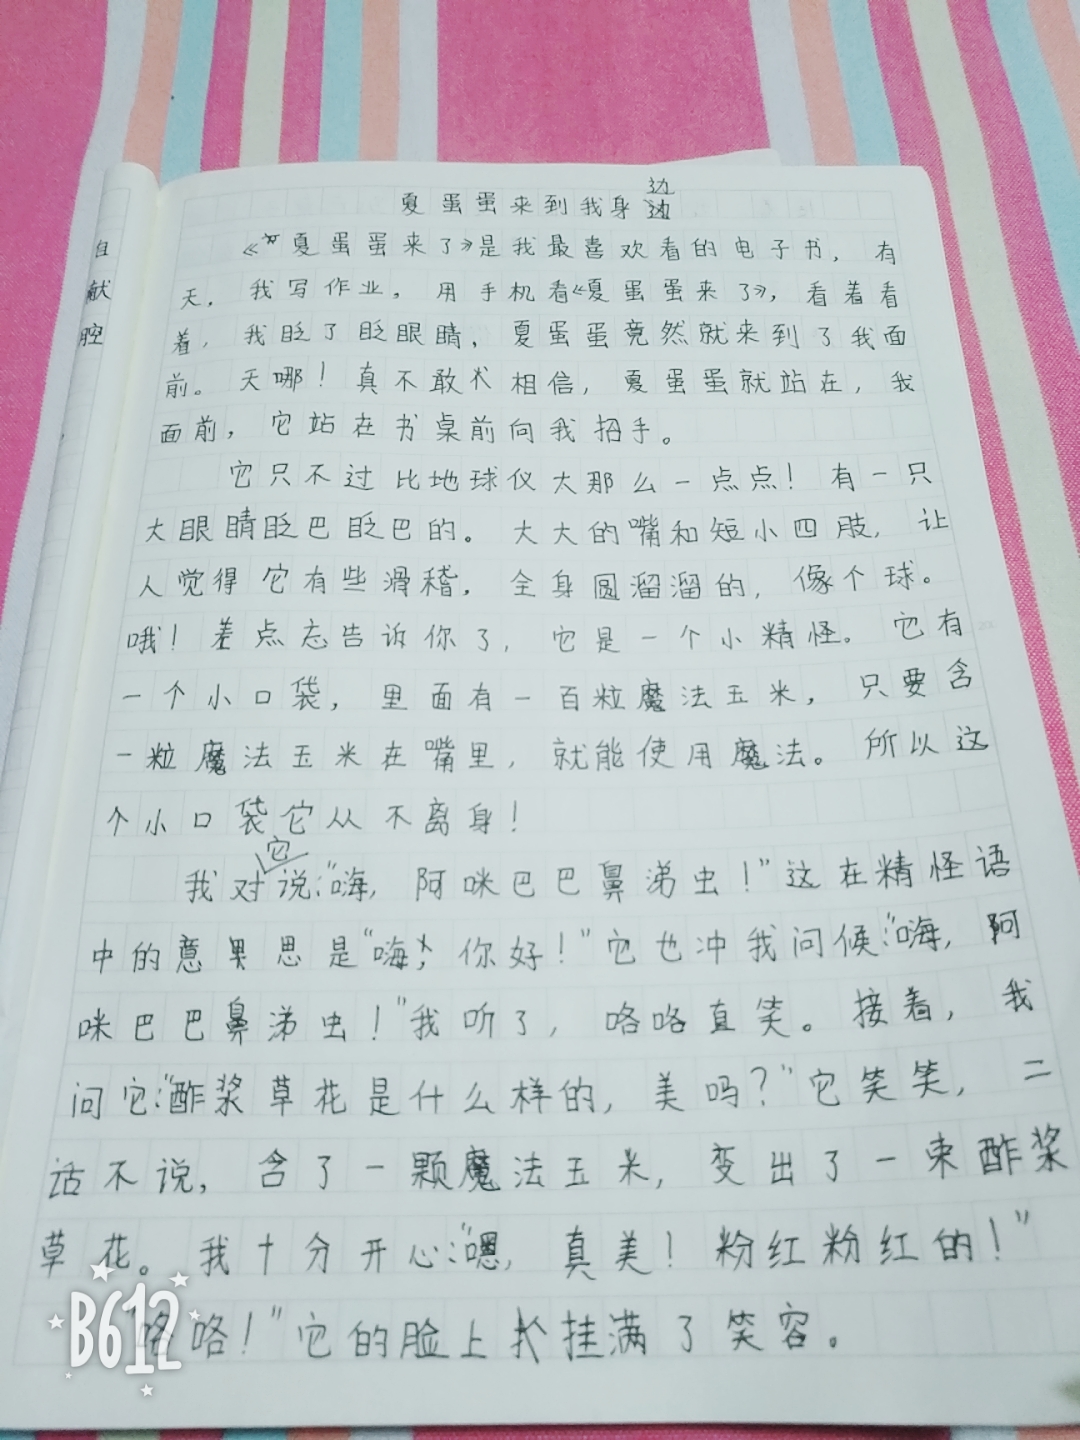 夏蛋蛋来到我身边
边
自
献
腔
《夏蛋蛋来了》是我最喜欢看的电子书，有
天，我写作业，用手机看《夏蛋蛋来了》，看着看
着，我眨了眨眼睛，夏蛋蛋竟然就来到了我面
前。天哪！真不敢相信，夏蛋蛋就站在，我
面前，它站在书桌前向我招手。
它只不过比地球仪大那么一点点！有一只
大眼睛眨巴眨巴的。大大的嘴和短小四肢，让
人觉得它有些滑稽，全身圆溜溜的，像个球。
哦！差点忘告诉你了，它是一个小精怪。它有
一个小口袋，里面有一百粒魔法玉米，只要含
一粒魔法玉米在嘴里，就能使用魔法。所以这
个小口袋它从不离身！
我对它说：“嗨，阿咪巴巴鼻涕虫！”这在精怪语
中的意思是“嗨，你好！”它也冲我问候：“嗨，阿
咪巴巴鼻涕虫！”我听了，咯咯直笑。接着，我
问它：“酢浆草花是什么样的，美吗？”它笑笑，二
话不说，含了一颗魔法玉米，变出了一束酢浆
草花。我十分开心：“嗯，真美！粉红粉红的！”
“咯咯！”它的脸上挂满了笑容。
B612